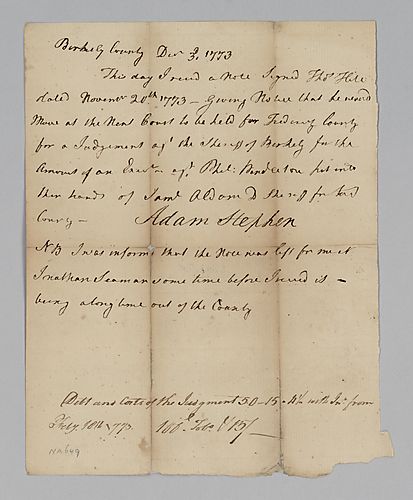 Berkely County Decr 3, 1773
This day I recd a Note Signed Thos Hite
dated Novemr 20th 1773 – Giving Notice that he would
Move at the Next Court to be held for Frederig County
for a Judgement agt the Sheriff of Berkely for the
Amount of an Exn agt Phil: Pendleton put into
the hands of Saml Oldham D Sheriff for said
County –
Adam Stephen
NB I was informd that the Note was left for me at
Jonathan Seaman some time before I recd it –
being a long time out of the County
Debt and Costs of the Judgment 50–15 with Int from
Feby 10th 1773. Tobo 15/–
NA649